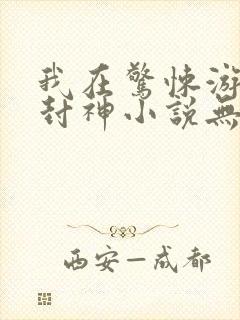 我在驚悚游
封神小說無
西安—成都